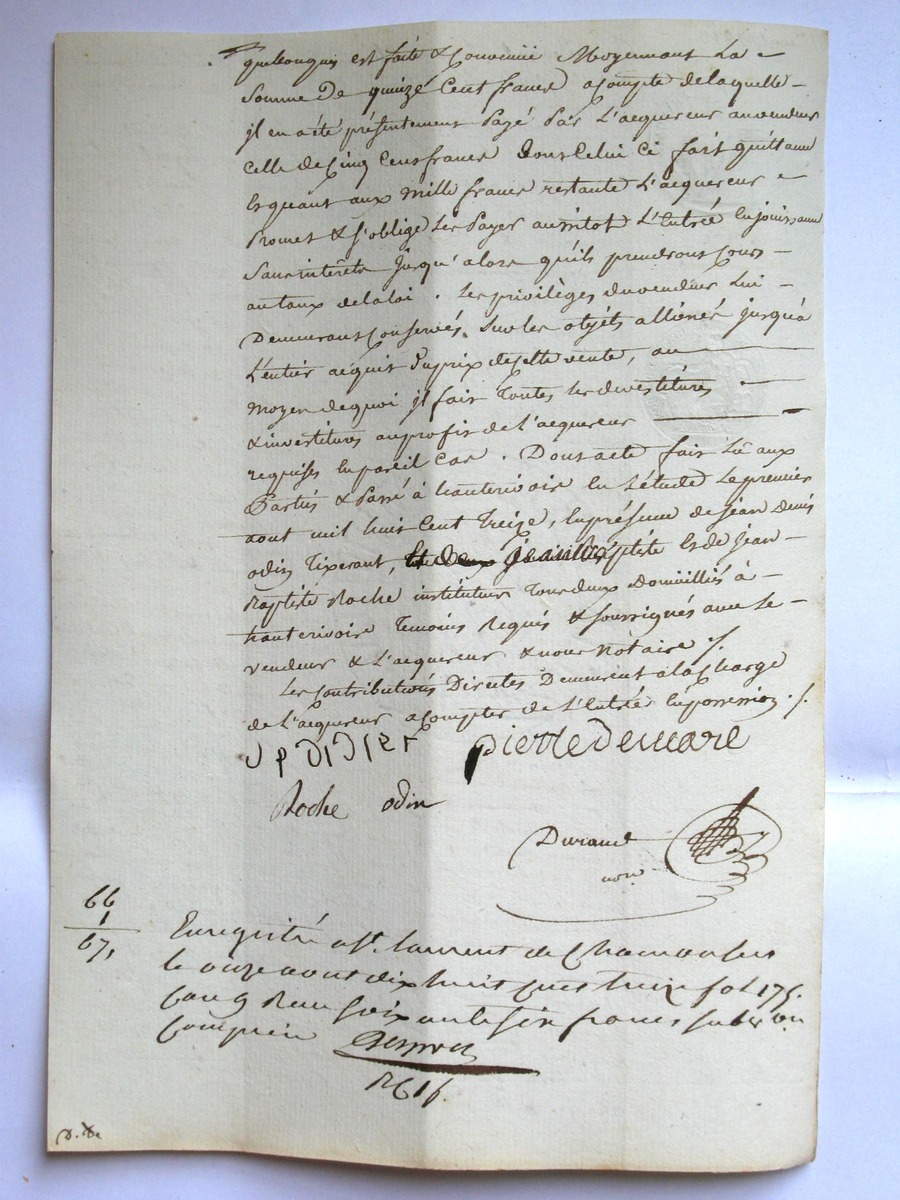 quelconque est faite & Convenüe Moyennant La
Somme De quinze Cent francs acompte delaquelle
jl en a été présentement Payé Par L'acquereur auvendeur
Celle de Cinq Cens francs dont Celui Ci fait quittance
Et quant aux Mille francs restants L'acquereur
Promet & s'oblige Les Payer aussitot L'Entrée Enjouissance
Sans intérêts jusqu'alors qu'ils prendront Cours
au taux delaloi. Les privilèges du vendeur Lui
Demeurans Conservés Sur les objets alliénés jusqu'a
L'entier acquit du prix decette vente, au
moyen dequoi jl fait Toutes les devestitures
& investitures auprofit de L'acquereur
requises En pareil Cas. Dont acte fait Lû aux
Parties & Passé à hauterivoire En L'étude Le premier
aout mil huit Cent Treize, Enprésence de jean Denis
odin Tixerant, Et de jean
Baptiste Roche instituteur Tous deux Domiciliés à
hauterivoire Temoins Requis & soussignés avec le
vendeur & L'acquereur & nous Notaire ./.
Les Contributions Directes Demeurent alaCharge
de L'acquereur acompter de L'Entrée Enpossession ./.
J p DiDier pierre Demare
Roche odin
Durand
nore
66
1
67,
Enregistré a St. Laurent de Chamousset
le onze aout dix huit cent treize fol 175.
Case 9 Reçu soixante six francs
Compris